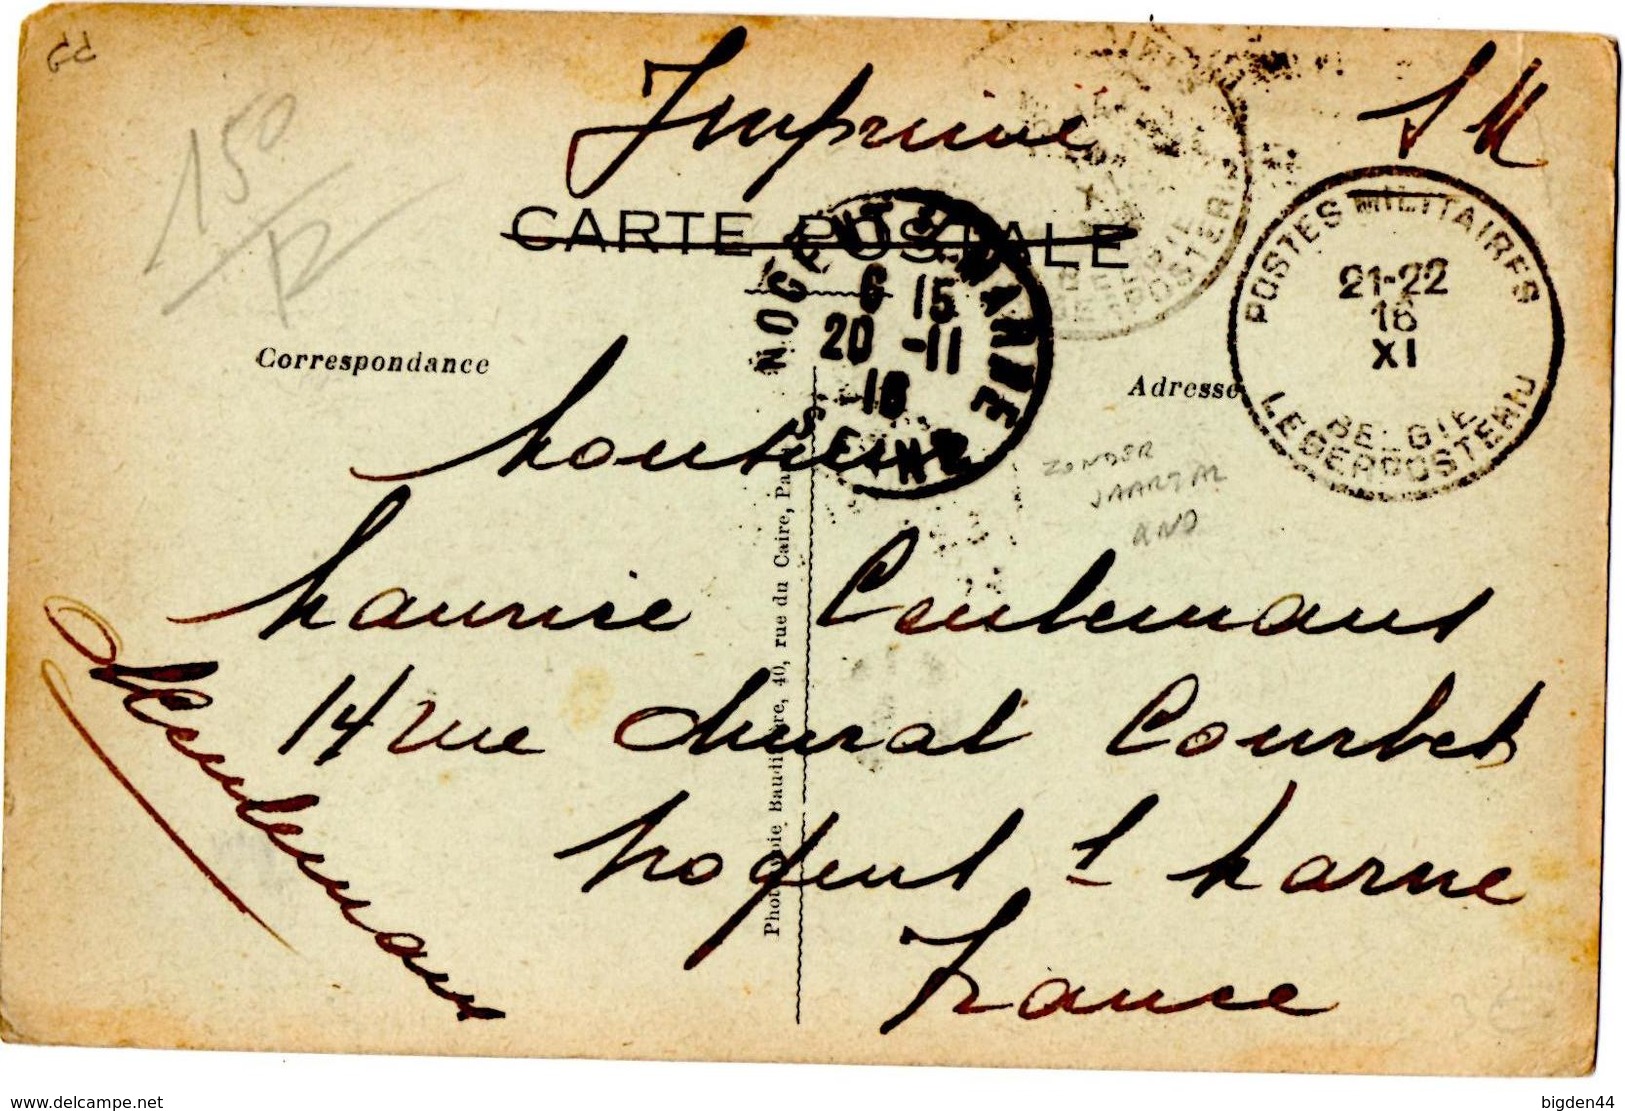 Imprimé S M
CARTE POSTALE
150
Correspondance
Adresse
POSTES MILITAIRES
21-22
16
XI
BELGIE
LEGERPOSTERIJ
NOGENT-S-MARNE
6 15
20 -11
16
SEINE
XI
BELGIE
LEGERPOSTERIJ
ZONDER
JAARTAL
AND
Monsieur
Maurice Ceulemans
14 rue Amiral Courbet
Nogent s/ Marne
France
Ceulemans
Phototypie Baudinière, 40, rue du Caire, Paris
delcampe.net
bigden44